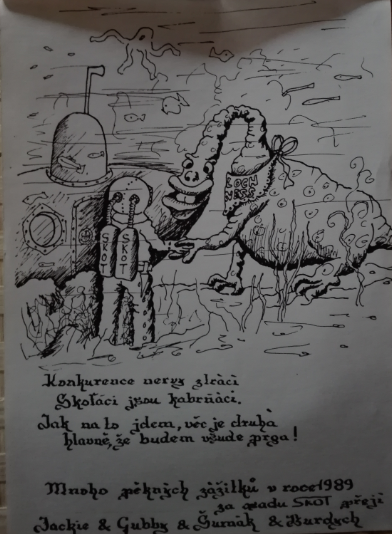 LOCH
NESS
SKOT
SKOT
Konkurence nervy ztrácí
Skoťáci jsou kabrňáci.
Jak na to jdem, věc je druhá
hlavně, že budem všude prga!
Mnoho pěkných zážitků v roce 1989
za SKOT přejí
Jackie & Gubby & &